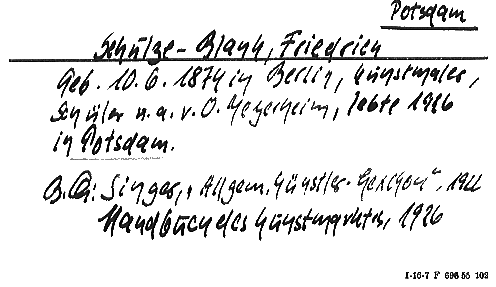 Potsdam
Schulze-Blank, Friedrich
Geb. 10.6.1874 in Berlin, Kunstmaler,
Schüler u.a.v. O. Meyerheim, lebte 1926
in Potsdam.
Singer, "Allgem. Künstler-Lexikon", 1922
Handbuch des Kunstmarktes, 1926
I-16-7 F 696 55 103